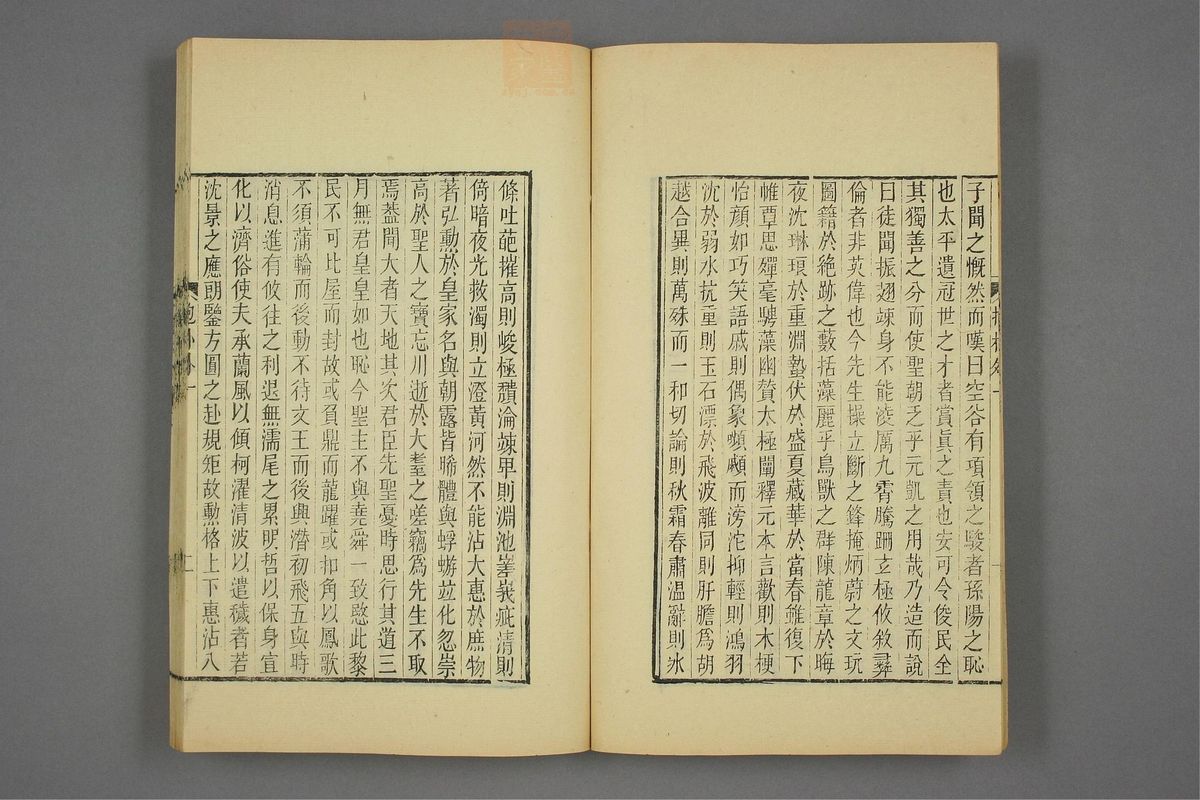 子聞之慨然而嘆曰空谷有項領之駿者孫陽之恥
也太平遺冠世之才者賞眞之責也安可令俊民全
其獨善之分而使聖朝乏乎元凱之用哉乃造而說
曰徒聞振翅竦身不能淩厲九霄騰跚玄極攸敘彝
倫者非英偉也今先生操立斷之鋒掩炳蔚之文玩
圖籍於絶跡之藪括藻麗乎鳥獸之群陳龍章於晦
夜沈琳琅於重淵蟄伏於盛夏藏華於當春雖復下
帷覃思殫毫騁藻幽贊太極闡釋元本言歡則木梗
怡顔如巧笑語戚則偶象嚬顣而滂沱抑輕則鴻羽
沈於弱水抗重則玉石漂於飛波離同則肝膽爲胡
越合異則萬殊而一和切論則秋霜春肅温辭則氷
條吐葩摧高則峻極頽淪竦卑則淵池嵾嶻疵清則
倚暗夜光救濁則立澄黃河然不能沾大惠於庶物
著弘勳於皇家名與朝露皆晞體與蜉蝣竝化忽崇
高於聖人之寶忘川逝於大耋之嗟竊爲先生不取
焉葢聞大者天地其次君臣先聖憂時思行其道三
月無君皇皇如也恥今聖主不與堯舜一致愍此黎
民不可比屋而封故或負鼎而龍躍或扣角以鳳歌
不須蒲輪而後動不待文王而後興潛初飛五與時
消息進有攸往之利退無濡尾之累明哲以保身宣
化以濟俗使夫承蘭風以傾柯濯清波以遣穢者若
沈景之應朗鑒方圓之赴規矩故勲格上下惠沾八